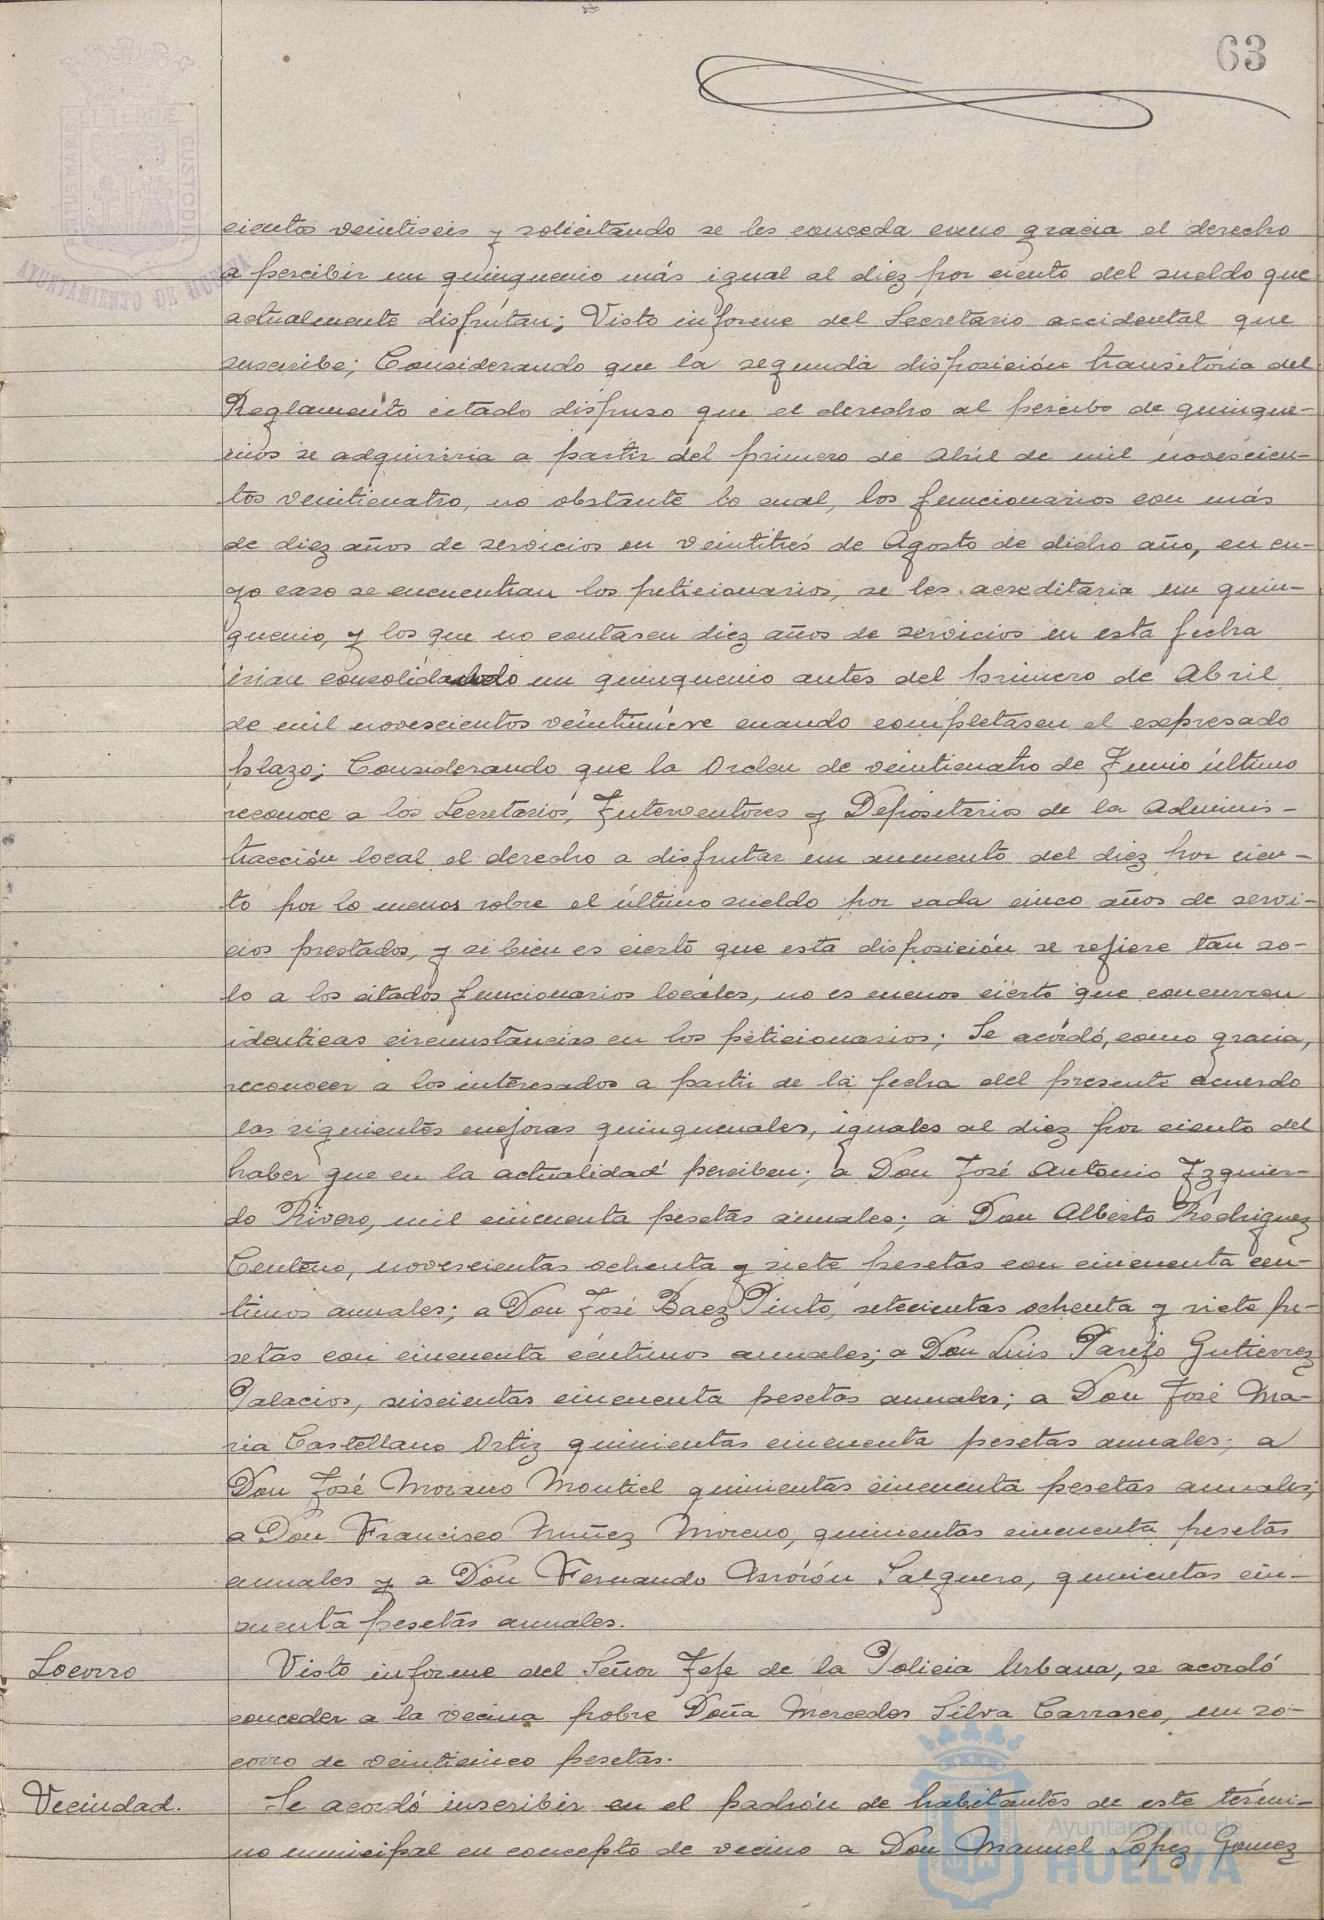 63
PORTUS MARIS ET TERRÆ CUSTODIA
AYUNTAMIENTO DE HUELVA
cientos veintiseis y solicitando se les conceda como gracia el derecho
a percibir un quinquenio más igual al diez por ciento del sueldo que
actualmente disfrutan; Visto informe del Secretario accidental que
suscribe; Considerando que la segunda disposición transitoria del
Reglamento citado dispuso que el derecho al percibo de quinque-
nios se adquiriria a partir del primero de Abril de mil novescien-
tos veinticuatro, no obstante lo cual, los funcionarios con más
de diez años de servicios en veintitrés de Agosto de dicho año, en cu-
yo caso se encuentran los peticionarios, se les acreditaria un quin-
quenio, y los que no contasen diez años de servicios en esta fecha
irian consolidando un quinquenio antes del primero de Abril
de mil novescientos veintinueve cuando completasen el expresado
plazo; Considerando que la Orden de veinticuatro de Junio último
reconoce a los Secretarios, Interventores y Depositarios de la Adminis-
tracción local el derecho a disfrutar un aumento del diez por cien-
to por lo menos sobre el último sueldo por cada cinco años de servi-
cios prestados, y si bien es cierto que esta disposición se refiere tan so-
lo a los citados funcionarios locales, no es menos cierto que concurren
identicas circunstancias en los peticionarios; Se acórdó, como gracia,
reconocer a los interesados a partir de la fecha del presente acuerdo
las siguientes mejoras quinquenales, iguales al diez por ciento del
haber que en la actualidad perciben; a Don José Antonio Izquier-
do Rivero, mil cincuenta pesetas anuales; a Don Alberto Rodriguez
Centeno, novescientas ochenta y siete pesetas con cincuenta cen-
timos anuales; a Don José Baez Pinto, setecientas ochenta y siete pe-
setas con cincuenta céntimos anuales; a Don Luis Parejo Gutierrez
Palacios, seiscientas cincuenta pesetas anuales; a Don José Ma-
ria Castellano Ortiz quinientas cincuenta pesetas anuales; a
Don José Morano Montiel quinientas cincuenta pesetas anuales;
a Don Francisco Nuñez Moreno, quinientas cincuenta pesetas
anuales y a Don Fernando Morón Salguero, quinientas cin-
cuenta pesetas anuales.
Socorro
Visto informe del Señor Jefe de la Policia Urbana, se acordó
conceder a la vecina pobre Doña Mercedes Silva Carrasco, un so-
corro de veinticinco pesetas.
Vecindad.
Se acordó inscribir en el padrón de habitantes de este térmi-
no municipal en concepto de vecino a Don Manuel López Gomez
Ayuntamiento de
HUELVA